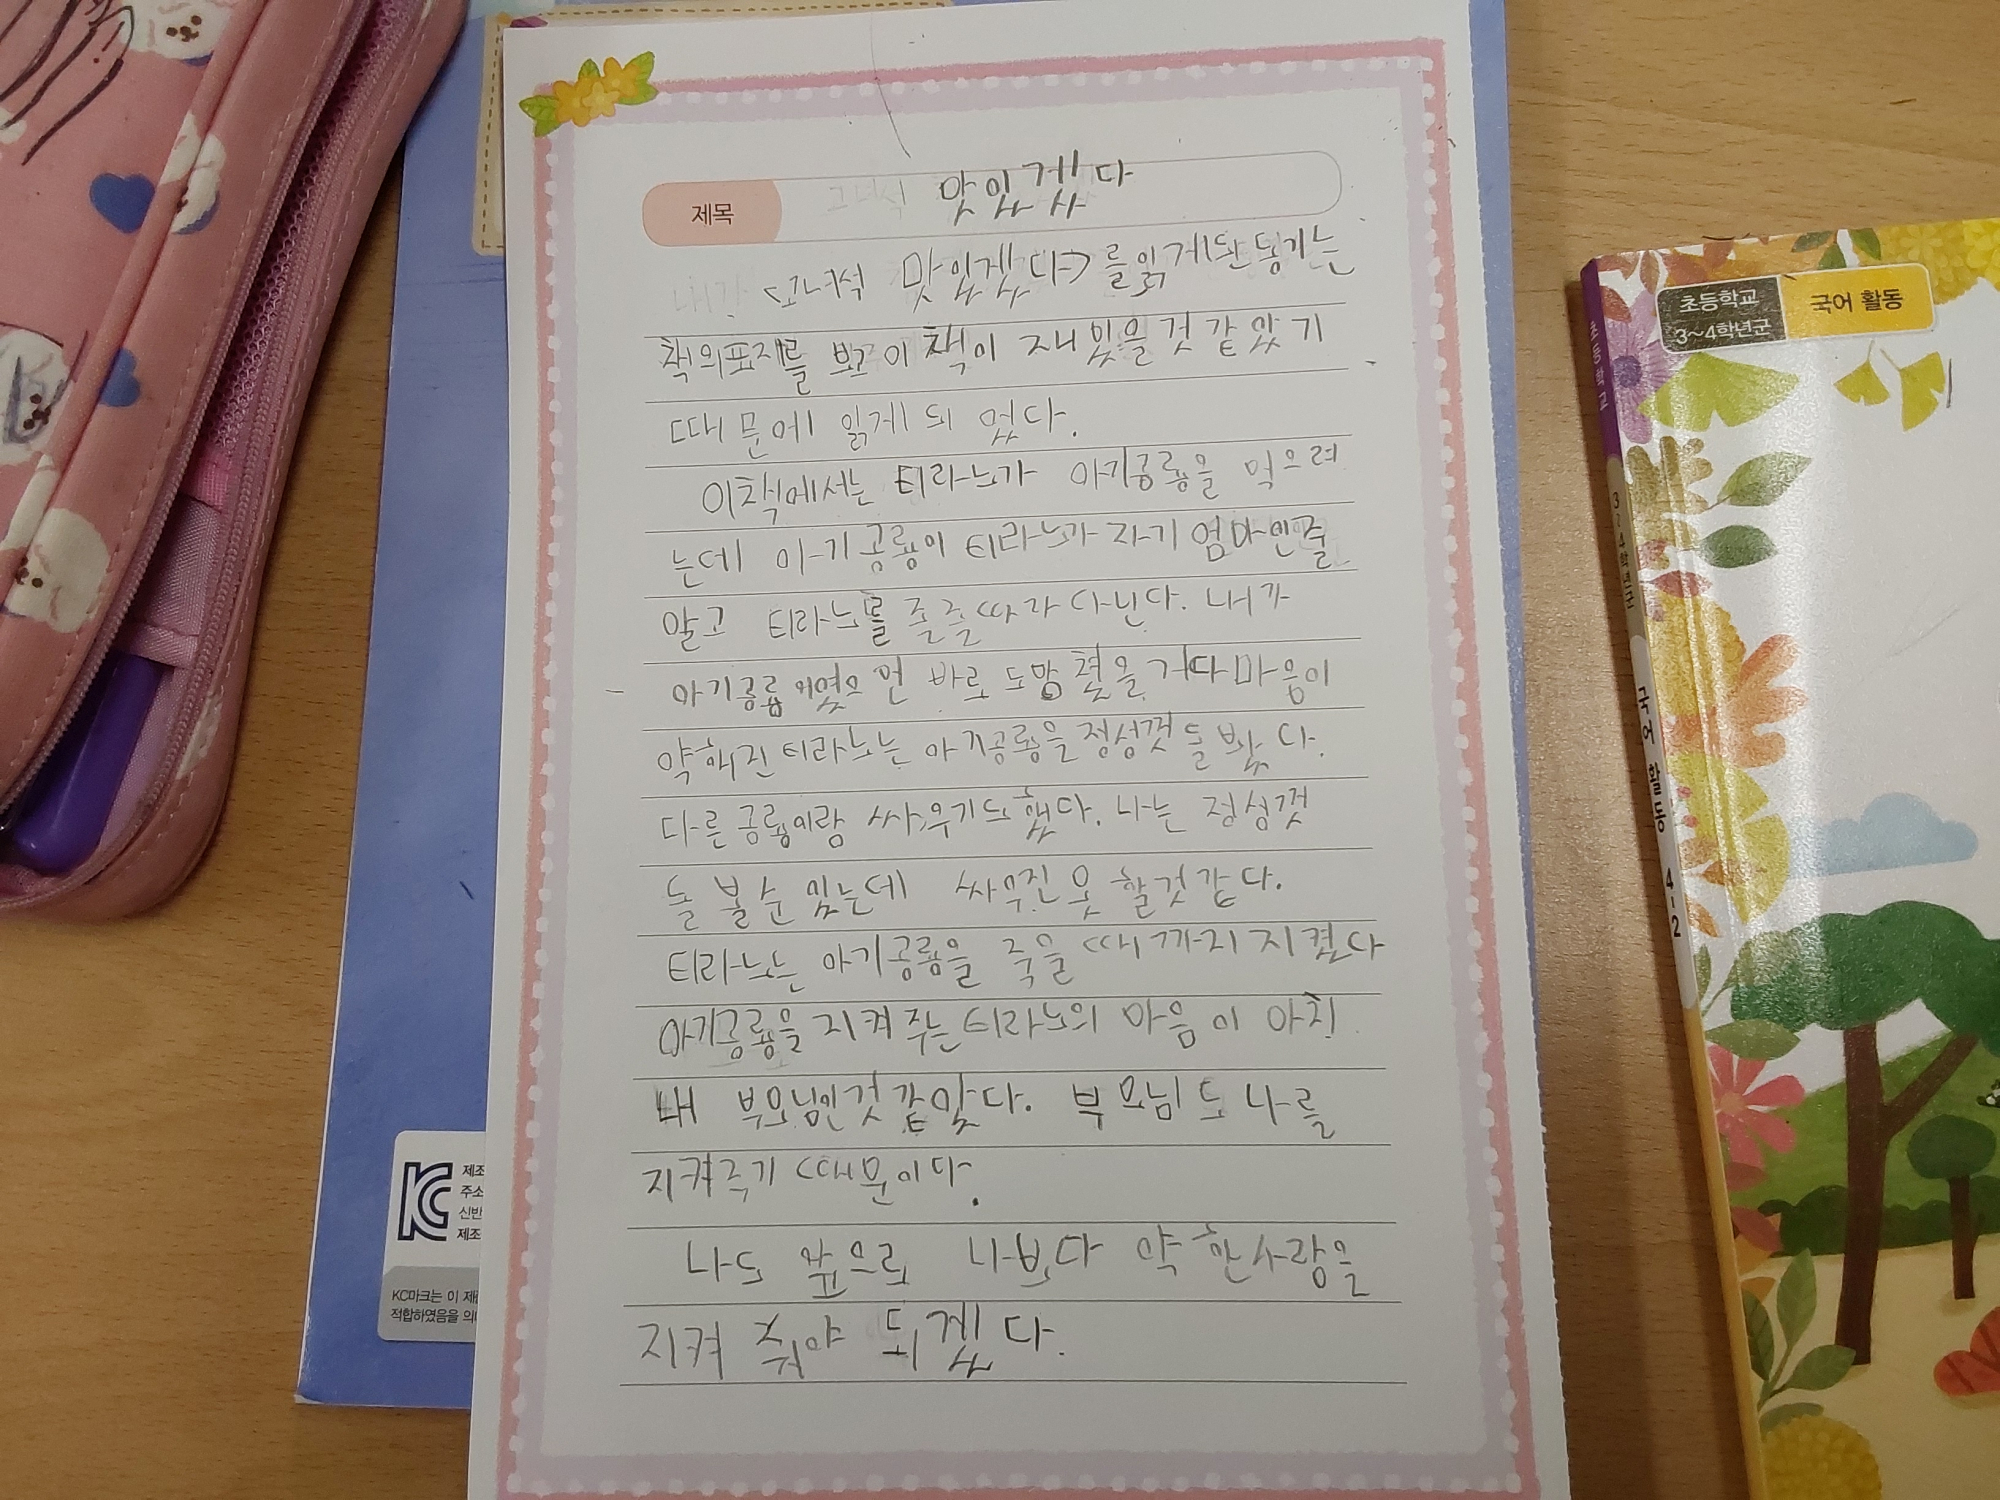 제목 맛있겠다
<고녀석 맛있겠다>를 읽게된 동기는
책의표지를 보고 이 책이 재밌을것 같았기
때문에 읽게 되었다.
이책에서는 티라노가 아기공룡을 먹으려
는데 아기공룡이 티라노가 자기 엄마인줄
알고 티라노를 졸졸따라다닌다. 내가
아기공룡이였으면 바로 도망쳤을 거다 마음이
약해진 티라노는 아기공룡을 정성껏 돌봤다.
다른공룡이랑 싸우기도했다. 나는 정성껏
돌볼순 있는데 싸우진 못 할것같다.
티라노는 아기공룡을 죽을 때까지 지켰다
아기공룡을 지켜주는 티라노의 마음이 마치
내 부모님인것 같았다. 부모님도 나를
지켜주기 때문이다.
나도 앞으로 나보다 약한사람을
지켜 줘야 되겠다.
초등학교
3~4학년군
국어 활동
초등학교
3~4학년군
국어 활동 4-2
KC
제조
주소
신반
제조
KC마크는 이 제
적합하였음을 의